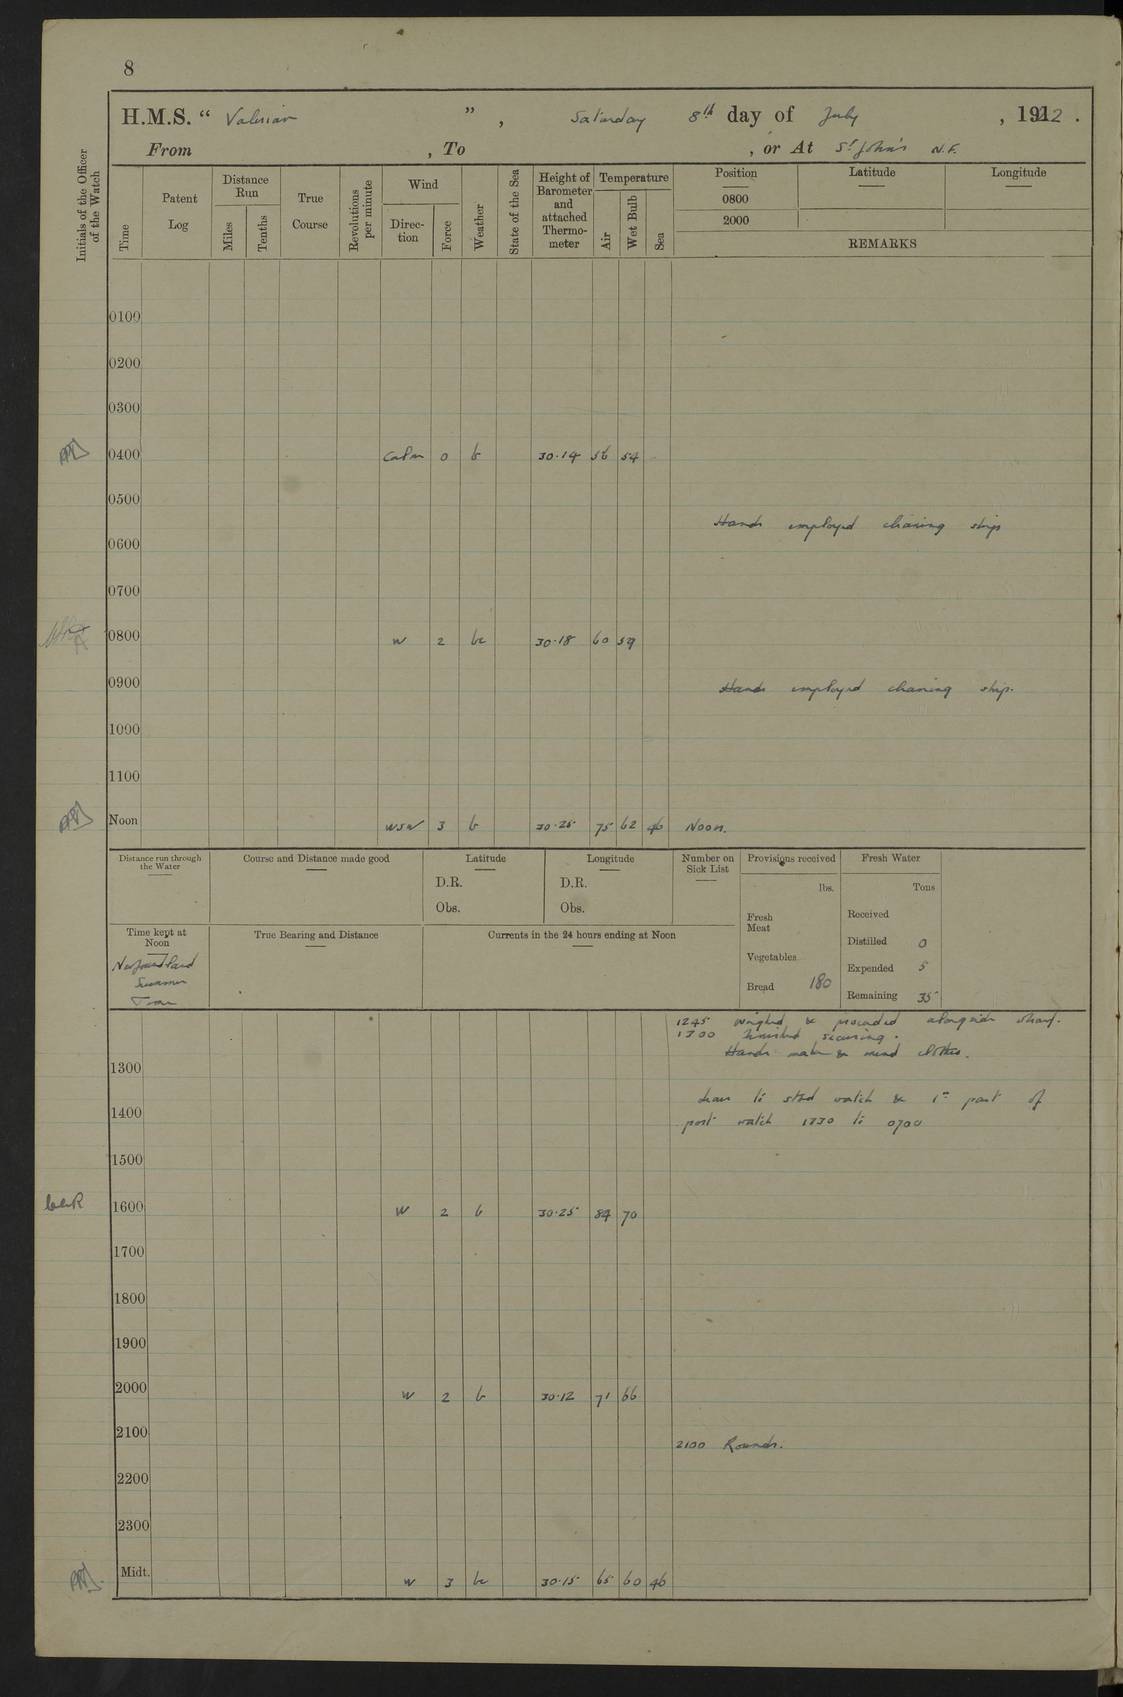 8
H.M.S. “ Valerian ” , Saturday 8th day of July , 1922 .
From , To , or At St John's N.F.
Initials of the Officer of the Watch
Time Patent Log Distance Run Miles Tenths True Course Revolutions per minute Wind Direc- tion Force Weather State of the Sea Height of Barometer and attached Thermo- meter Temperature Air Wet Bulb Sea Position Latitude Longitude
0800
2000
REMARKS
0100
0200
0300
0400 Calm 0 b 30.14 56 54
0500
Hands employed cleaning ship
0600
0700
0800 W 2 bc 30.18 60 59
0900 Hands employed cleaning ship.
1000
1100
Noon WSW 3 b 30.25 75 62 46 Noon.
Distance run through the Water Course and Distance made good Latitude Longitude Number on Sick List Provisions received Fresh Water
D.R. D.R. lbs. Tons
Obs. Obs. Fresh Meat Received
Time kept at Noon True Bearing and Distance Currents in the 24 hours ending at Noon Distilled 0
Newfoundland Vegetables Expended 5
Summer Bread 180
Time Remaining 35
1245 weighed & proceeded alongside wharf.
1300 Finished securing.
Hands make & mend clothes.
1300
Leave to stbd watch & 1st part of
1400
port watch 1330 to 0700
1500
1600 W 2 b 30.25 84 70
1700
1800
1900
2000 W 2 b 30.12 71 66
2100 2100 Rounds.
2200
2300
Midt. W 3 bc 30.15 65 60 46